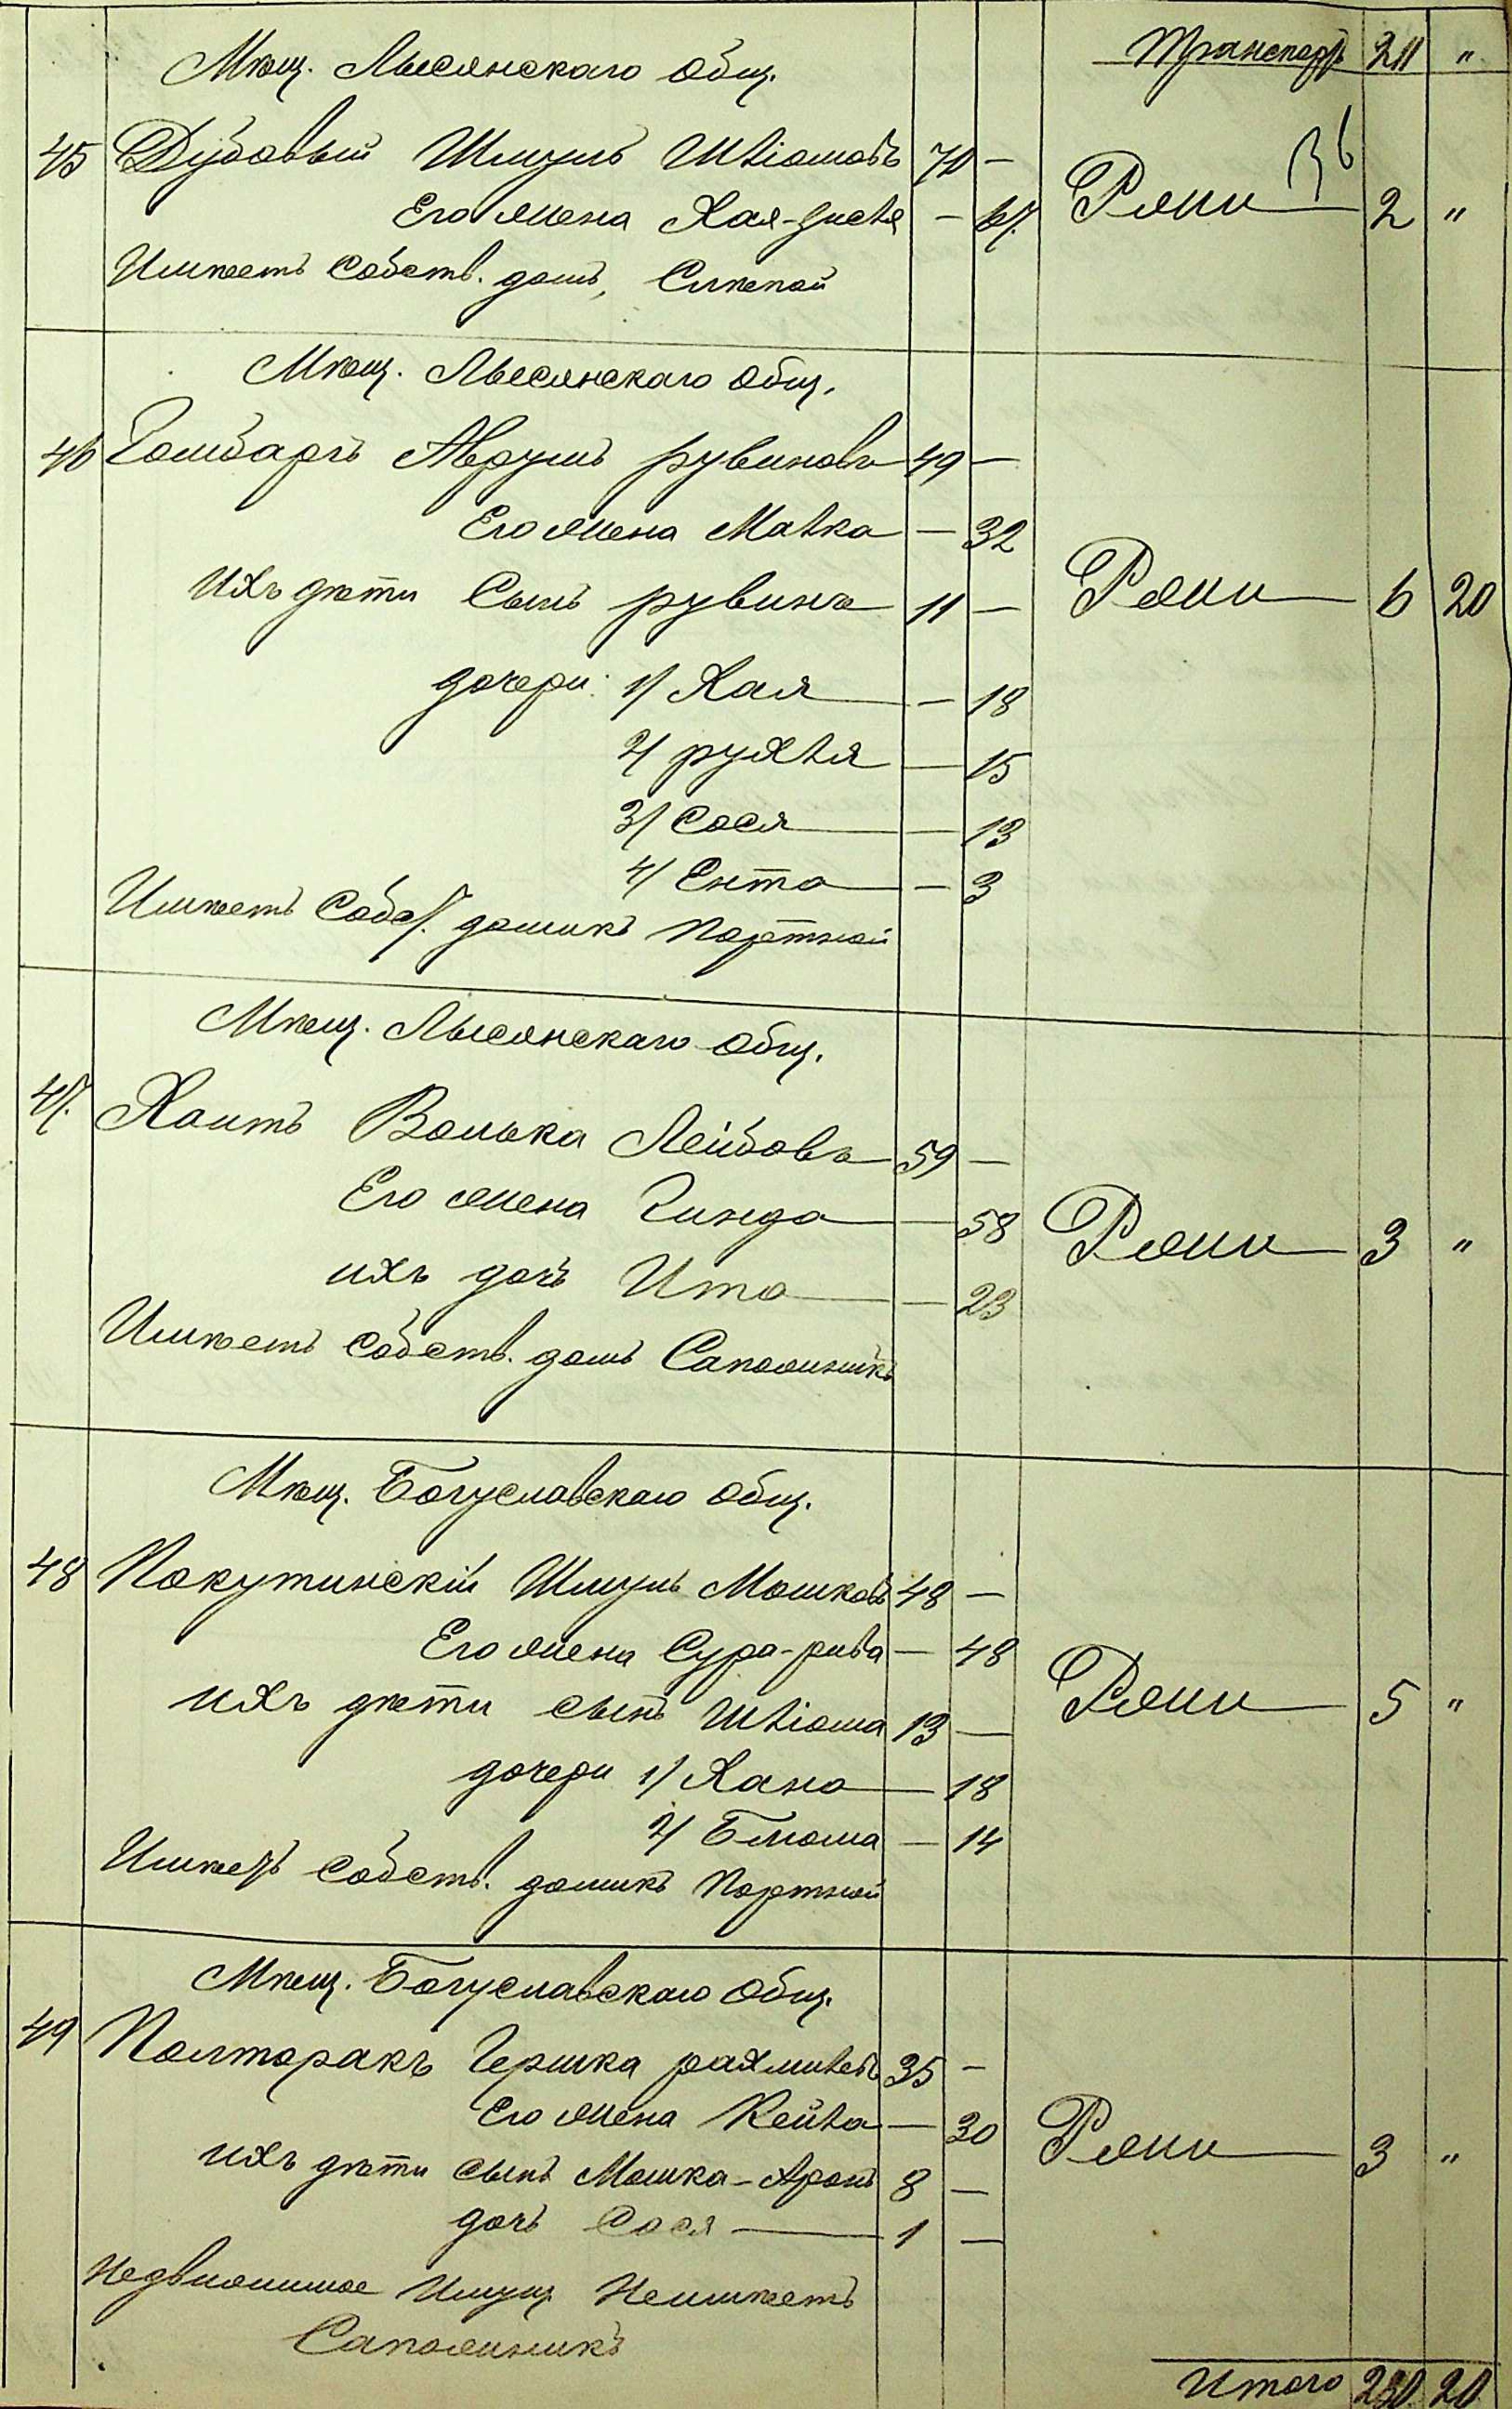 Транспортъ 211 "
Мѣщ. Лысянскаго Общ.
45 Дубовый Шмуль Шліомовъ 70 —
Его жена Хая-Зисля — 67. Ржищ 2 "
Имѣетъ Собств. домъ, Слѣпой
Мѣщ. Лысянскаго Общ.
46 Гомбаргъ Аврумъ Рувиновъ 49 —
Его жена Малка — 32
Ихъ дѣти Сынъ Рувинъ 11 — 6 20
дочери: 1/ Хая — 18
2/ Рухля — 15
3/ Сося — 13
4/ Ента — 3
Имѣетъ Собст. домикъ Портной
Мѣщ. Лысянскаго Общ.
47. Хаитъ Волька Лейбовъ 59 —
Его жена Гинда — 58 3 "
ихъ дочь Ита — 23
Имѣетъ собств. домъ Сапожникъ
Мѣщ. Богуславскаго Общ.
48 Покутинскій Шмуль Мошковъ 48 —
Его жена Сура-Рива — 48
ихъ дѣти сынъ Шліома 13 — 5 "
дочери 1/ Хана — 18
2/ Блюма — 14
Имѣетъ собств. домикъ Портной
Мѣщ. Богуславскаго Общ.
49 Полторакъ Гершка Рахмилевъ 35 —
Его жена Кейла — 30 3 "
ихъ дѣти сынъ Мошка-Аронъ 8 —
дочь Сося 1 —
Недвижимое Имущ. Неимѣетъ
Сапожникъ
Итого 230 20